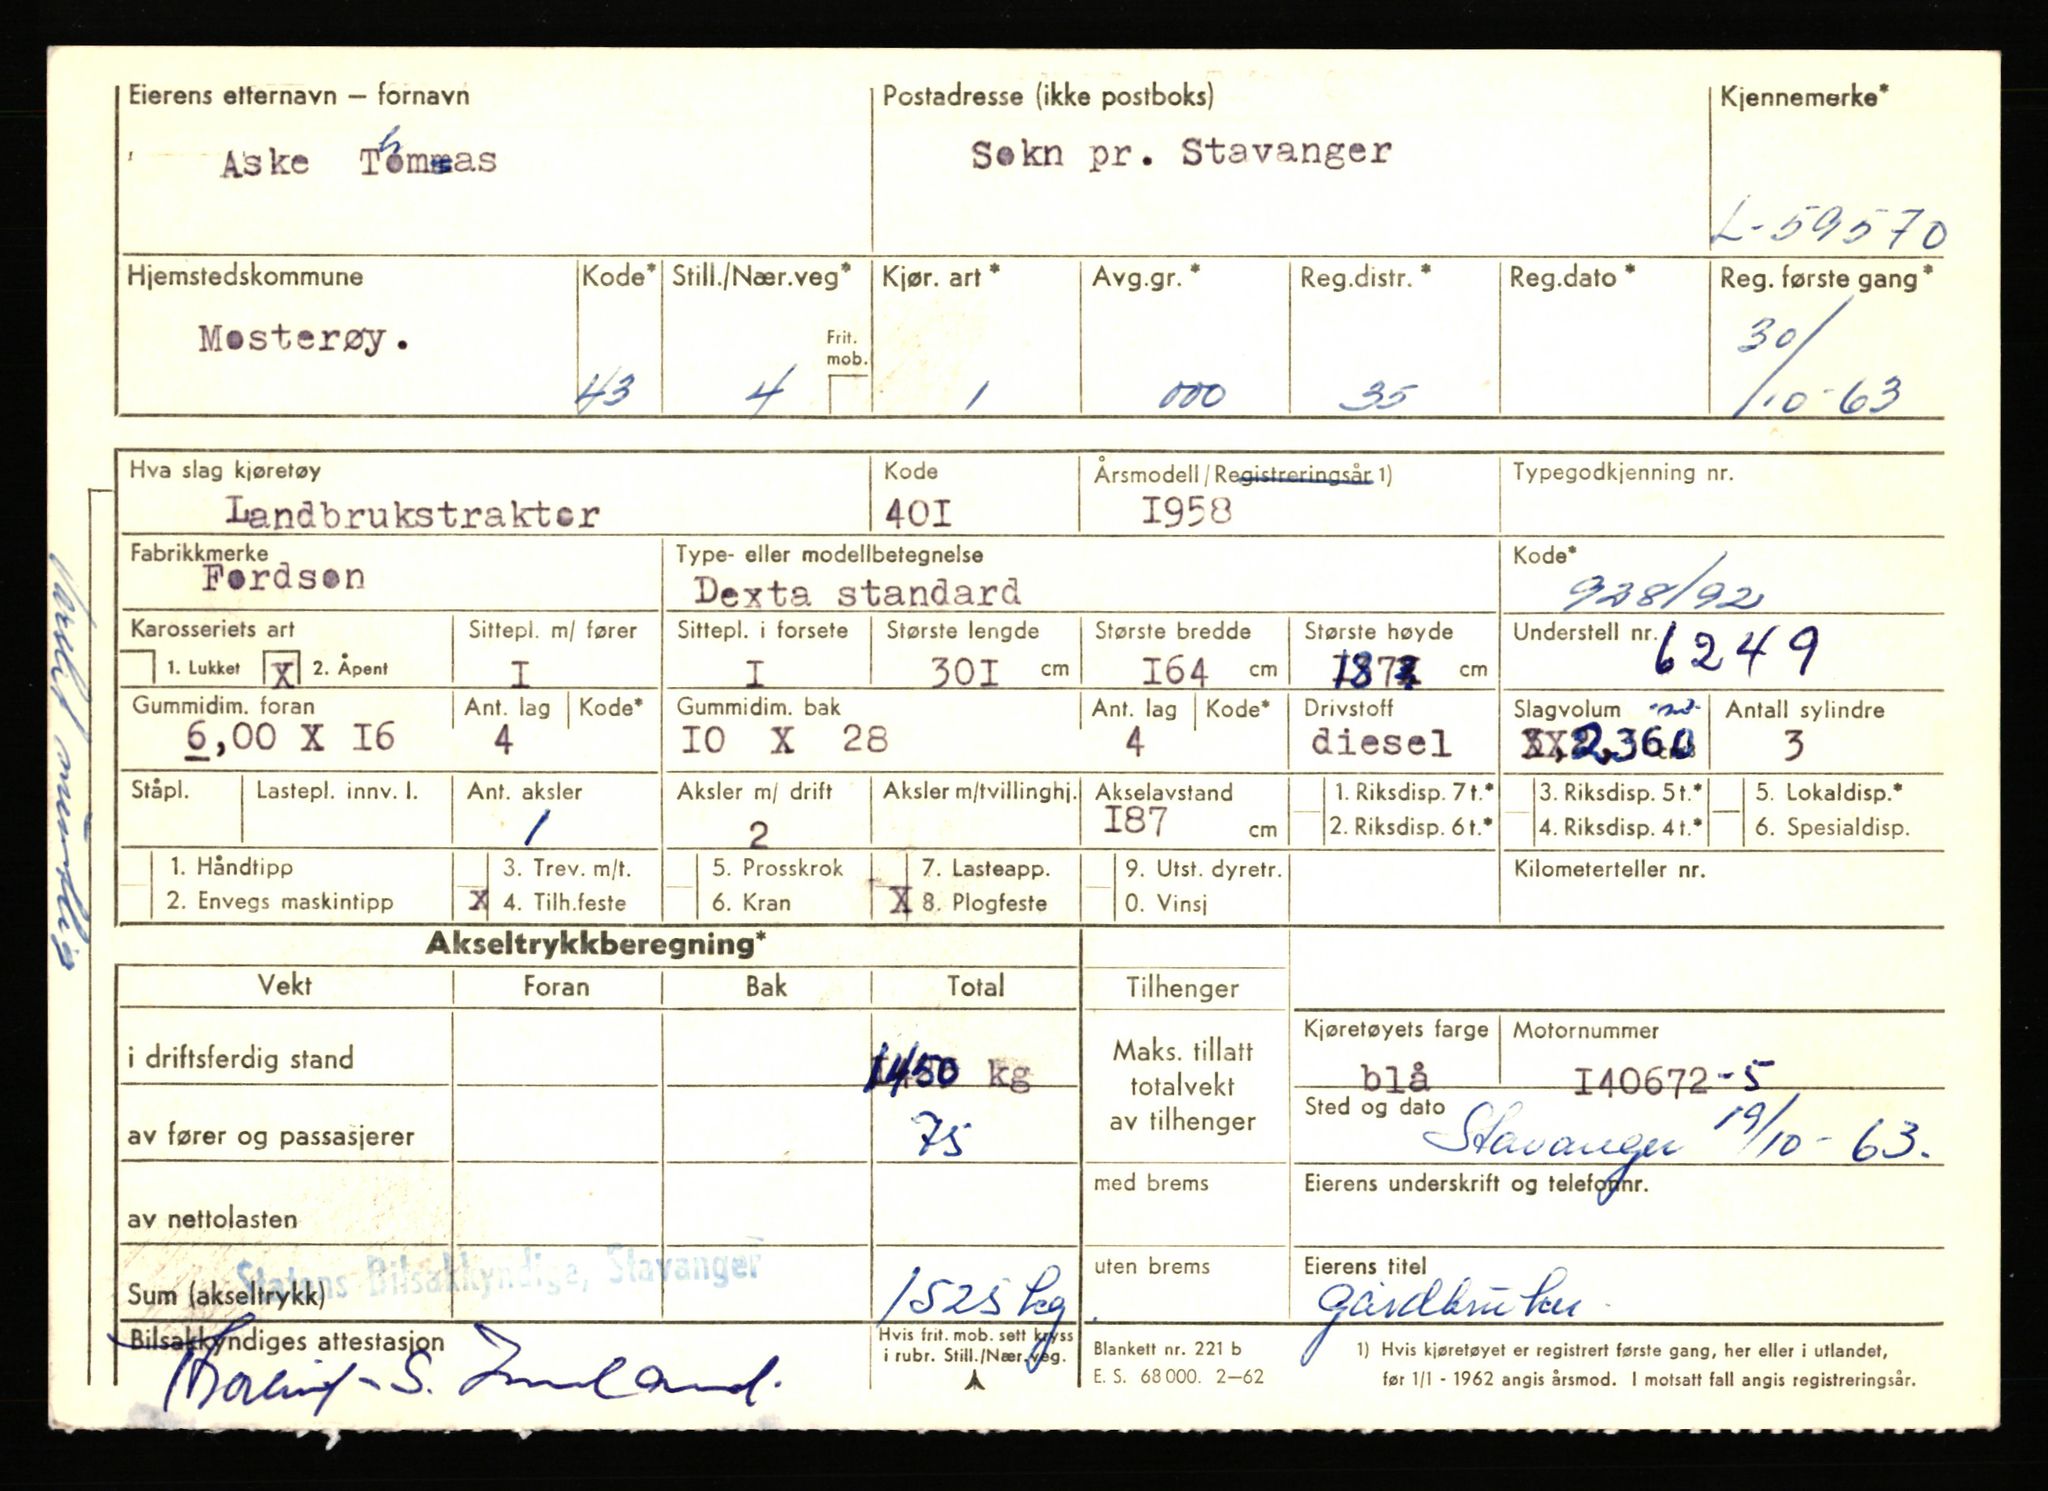 Eierens etternavn — fornavn Postadresse (ikke postboks) Kjennemerke*
Aske Thomas Sokn pr. Stavanger
L-59570
Hjemstedskommune Kode* Still./Nær.veg* Kjør. art* Avg.gr.* Reg.distr.* Reg.dato* Reg. første gang*
Mosterøy. Frit. mob. 30/
43 4 1 000 35 /10-63
Hva slag kjøretøy Kode Årsmodell/Registreringsår 1) Typegodkjenning nr.
Landbrukstraktor 40I I958
Fabrikkmerke Type- eller modellbetegnelse Kode*
Fordson Dexta standard 928/92
Karosseriets art Sittepl. m/ fører Sittepl. i forsete Største lengde Største bredde Største høyde Understell nr.
1. Lukket X 2. Åpent I I 30I cm I64 cm cm 6249
Gummidim. foran Ant. lag Kode* Gummidim. bak Ant. lag Kode* Drivstoff Slagvolum Antall sylindre
6,00 X I6 4 I0 X 28 4 diesel 2,360 3
Ståpl. Lastepl. innv. l. Ant. aksler Aksler m/ drift Aksler m/tvillinghj. Akselavstand 1. Riksdisp. 7 t.* 3. Riksdisp. 5 t.* 5. Lokaldisp.*
1 2 I87 cm 2. Riksdisp. 6 t.* 4. Riksdisp. 4 t.* 6. Spesialdisp.
1. Håndtipp 3. Trev. m/t. 5. Prosskrok 7. Lasteapp. 9. Utst. dyretr. Kilometerteller nr.
2. Envegs maskintipp X 4. Tilh.feste 6. Kran X 8. Plogfeste 0. Vinsj
Akseltrykkberegning*
Vekt Foran Bak Total Tilhenger
Kjøretøyets farge Motornummer
i driftsferdig stand 1450 kg Maks. tillatt totalvekt av tilhenger blå I40672-5
Sted og dato
av fører og passasjerer 75 Stavanger 19/10-63.
med brems Eierens underskrift og telefonnr.
av nettolasten
Statens Bilsakkyndige, Stavanger
uten brems Eierens titel
Sum (akseltrykk) 1525 kg Gårdbruker
Bilsakkyndiges attestasjon Hvis frit. mob. sett kryss Blankett nr. 221 b 1) Hvis kjøretøyet er registrert første gang, her eller i utlandet,
i rubr. Still./Nær.veg. E. S. 68 000. 2—62 før 1/1 - 1962 angis årsmod. I motsatt fall angis registreringsår.